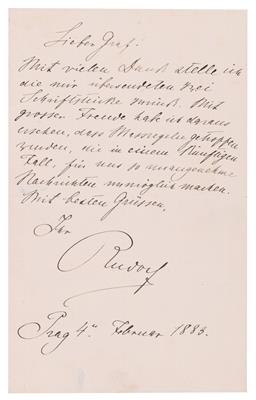 Lieber Graf!
Mit vielen Dank stelle ich
die mir übersendeten drei
Schriftstücke zurück. Mit
grosser Freude habe ich daraus
ersehen, dass Massregeln getroffen
wurden, die in einem künftigen
Fall, für uns so unangenehme
Nachrichten unmöglich machen.
Mit besten Grüssen,
Ihr
Rudolf
Prag 4. Februar 1883.